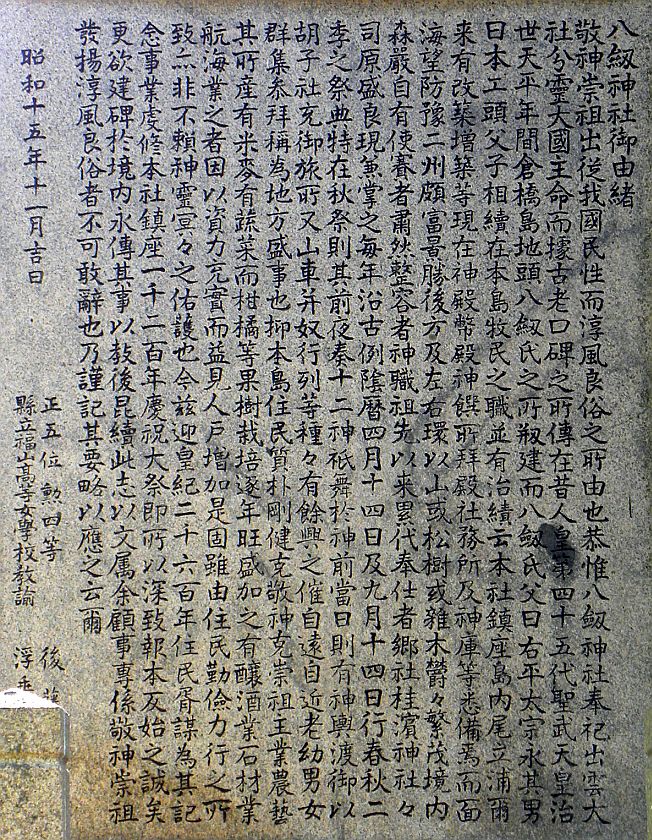 八劔神社御由緒
敬神崇祖出從我國民性而淳風良俗之所由也恭惟八劔神社奉祀出雲大
社分靈大國主命而據古老口碑之所傳在昔人皇第四十五代聖武天皇治
世天平年間倉橋島地頭八劔氏之所剏建而八劔氏父曰右平太宗永其男
曰本工頭父子相續在本島牧民之職並有治績云本社鎮座島内尾立浦爾
来有改築増築等現在神殿幣殿神饌所拜殿社務所及神庫等悉備焉而面
海望防豫二州頗富景勝後方及左右環以山或松樹或雜木欝々繁茂境内
森嚴自有使賽者肅然整容者神職祖先以来累代奉仕者郷社桂濱神社々
司原盛良現兼掌之每年沿古例隂曆四月十四日及九月十四日行春秋二
季之祭典特在秋祭則其前夜奏十二神祇舞於神前當日則有神輿渡御以
胡子社充御旅所又山車并奴行列等種々有餘興之催自遠自近老幼男女
群集参拜稱為地方盛事也抑本島住民質朴剛健克敬神克崇祖主業農藝
其所産有米麥有蔬菜而柑橘等果樹栽培逐年旺盛加之有釀酒業石材業
航海業之者因以資力充實而益見人戸增加是固雖由住民勤儉力行之所
致亦非不頼神靈冥々之佑護也今兹迎皇紀二千六百年住民胥謀為其記
念事業虔修本社鎮座一千二百年慶祝大祭即所以深致報本反始之誠矣
更欲建碑於境内永傳其事以敎後昆續此志以文属余顧事專係敬神崇祖
發揚淳風良俗者不可敢辭也乃謹記其要略以應之云爾
昭和十五年十一月吉日
正五位勲四等 後
縣立福山高等女學校敎諭 浮